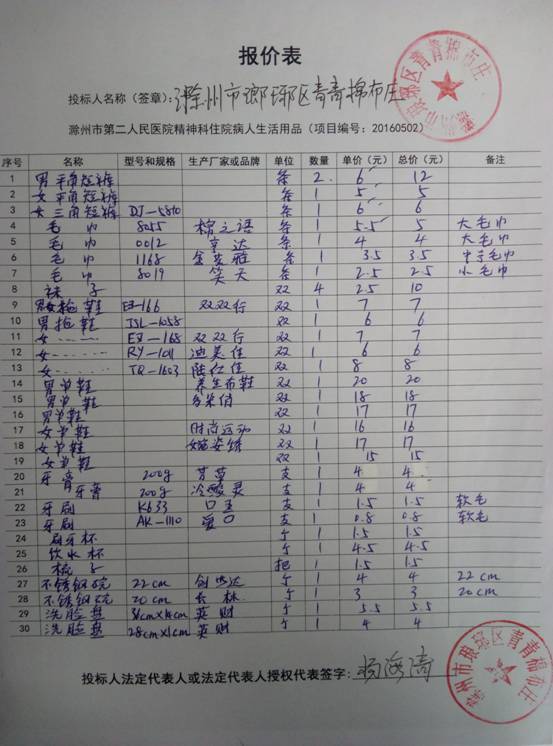 报价表
投标人名称（签章）：滁州市琅琊区青青棉布庄
滁州市第二人民医院精神科住院病人生活用品（项目编号：20160502）
序号 名称 型号和规格 生产厂家或品牌 单位 数量 单价（元） 总价（元） 备注
1 男平角短裤 条 2 6 12
2 女平角短裤 条 1 5 5
3 女三角短裤 DJ-5810 条 1 6 6
4 毛巾 8055 棉之语 条 1 5.5 5 大毛巾
5 毛巾 0012 享达 条 1 4 4 大毛巾
6 毛巾 1168 金英雅 条 1 3.5 3.5 中毛巾
7 毛巾 8019 笑天 条 1 2.5 2.5 小毛巾
8 袜子 双 4 2.5 10
9 男女拖鞋 EZ-166 双双行 双 1 7 7
10 男拖鞋 JSL-1058 双 1 6 6
11 女…… EZ-168 双双行 双 1 7 7
12 女…… RY-1011 迪美佳 双 1 6 6
13 女…… TR-1603 陆仁佳 双 1 8 8
14 男单鞋 养生布鞋 双 1 20 20
15 男单鞋 双 1 18 18
16 男单鞋 双 1 17 17
17 女单鞋 时尚运动 双 1 16 16
18 女单鞋 婉姿绣 双 1 17 17
19 女单鞋 双 1 15 15
20 牙膏 200g 芳草 支 1 4 4
21 牙膏 200g 冷酸灵 支 1 4 4
22 牙刷 K633 口王 支 1 1.5 1.5 软毛
23 牙刷 AK-1110 爱口 支 1 0.8 0.8 软毛
24 刷牙杯 个 1 1.5 1.5
25 饮水杯 个 1 4.5 4.5
26 梳子 把 1 1.5 1.5
27 不锈钢碗 22cm 创也达 个 1 4 4 22cm
28 不锈钢碗 20cm 长林 个 1 3 3 20cm
29 洗脸盆 英财 个 1 5.5 5.5
30 洗脸盆 英财 个 1 4 4
投标人法定代表人或法定代表人授权代表签字：杨海涛
滁州市琅琊区青青棉布庄
滁州市琅琊区青青棉布庄